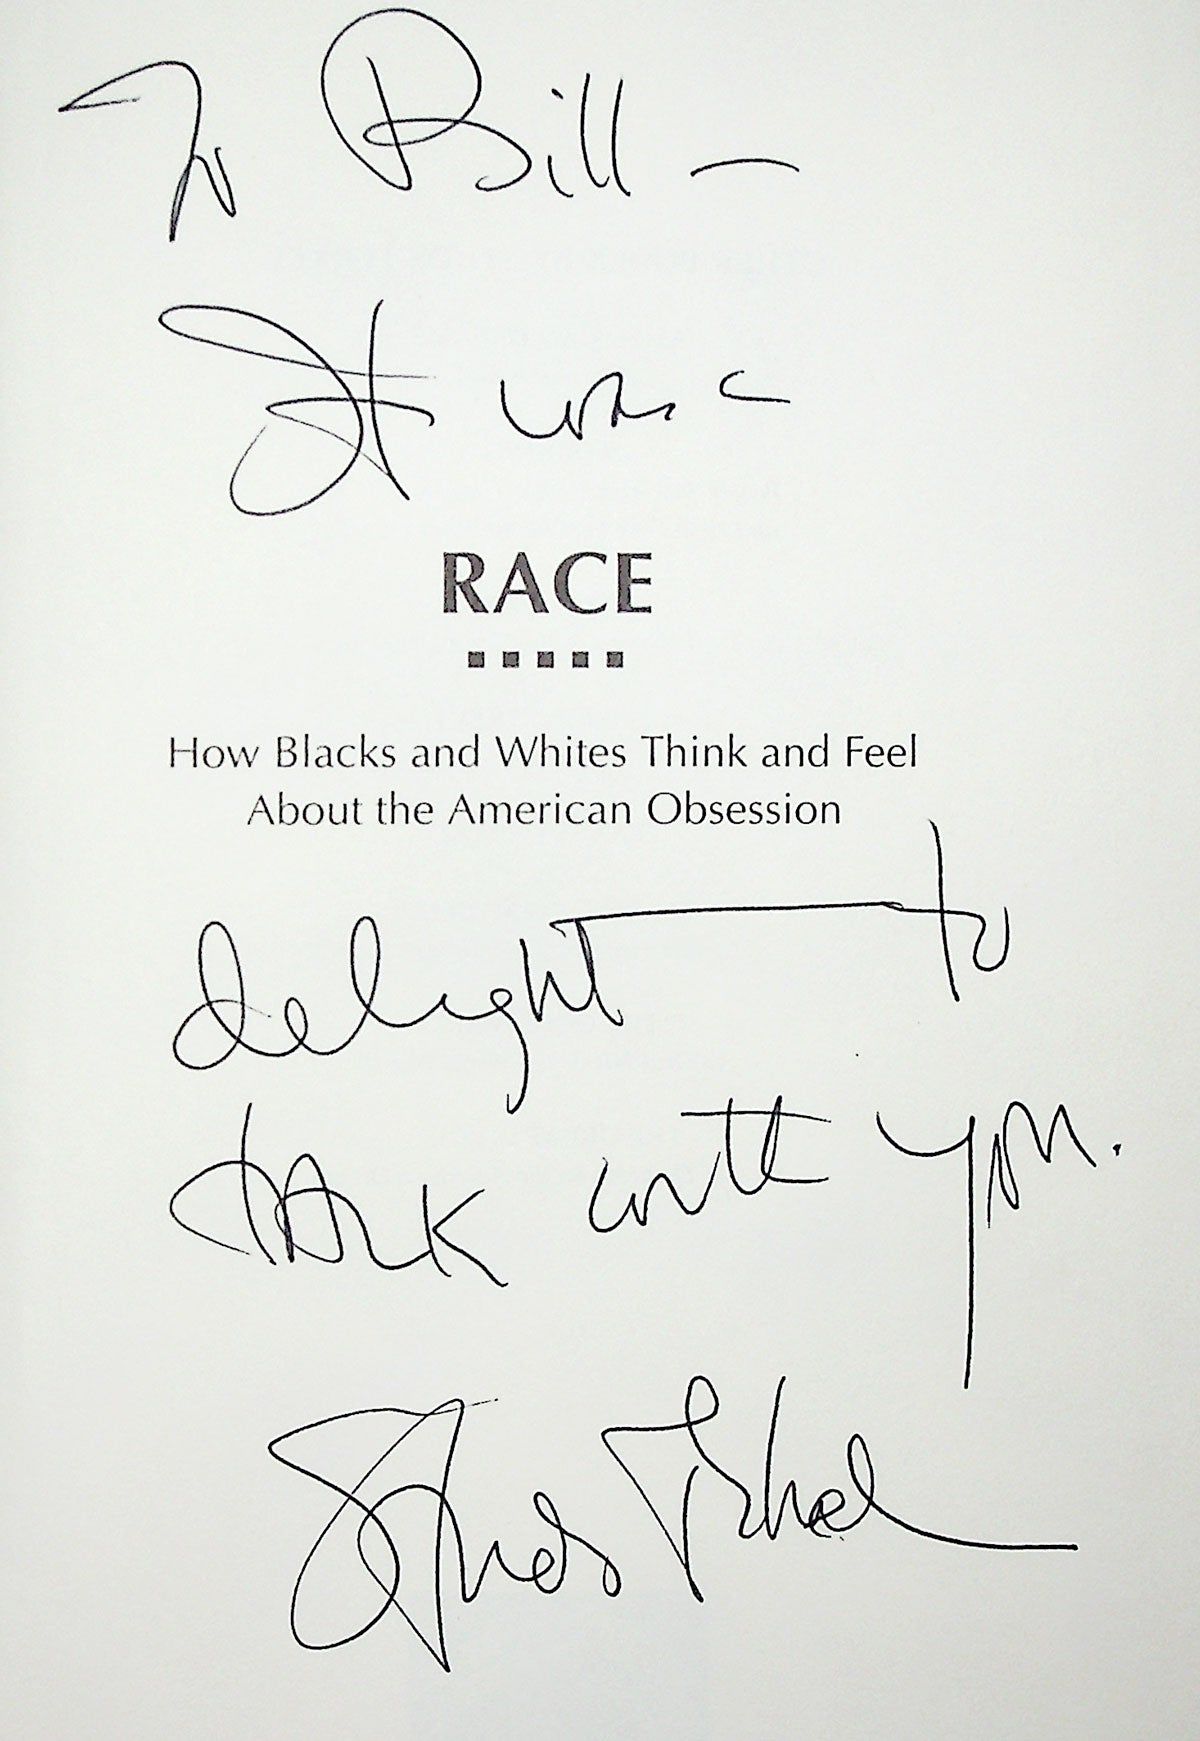 To Bill —
It was a
RACE
How Blacks and Whites Think and Feel
About the American Obsession
delight to
talk with you.
Studs Terkel